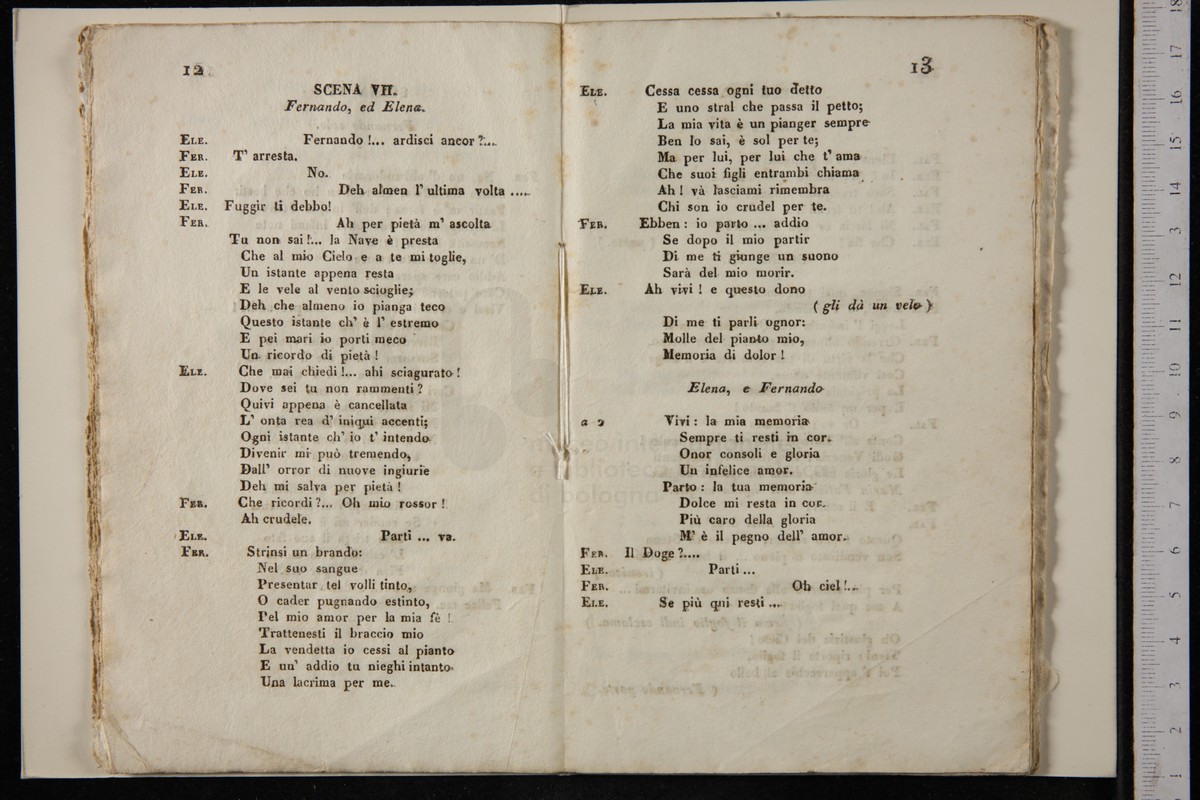 12
SCENA VII.
Fernando, ed Elena.
ELE. Fernando !... ardisci ancor ?...
FER. T' arresta.
ELE. No.
FER. Deh almen l' ultima volta .....
ELE. Fuggir ti debbo!
FER. Ah per pietà m' ascolta
Tu non sai !... la Nave è presta
Che al mio Cielo e a te mi toglie,
Un istante appena resta
E le vele al vento scioglie;
Deh che almeno io pianga teco
Questo istante ch' è l' estremo
E pei mari io porti meco
Un ricordo di pietà !
ELE. Che mai chiedi !... ahi sciagurato !
Dove sei tu non rammenti ?
Quivi appena è cancellata
L' onta rea d' iniqui accenti;
Ogni istante ch' io t' intendo
Divenir mi può tremendo,
Dall' orror di nuove ingiurie
Deh mi salva per pietà !
FER. Che ricordi ?... Oh mio rossor !
Ah crudele.
ELE. Parti ... va.
FER. Strinsi un brando:
Nel suo sangue
Presentar tel volli tinto,
O cader pugnando estinto,
Pel mio amor per la mia fè !
Trattenesti il braccio mio
La vendetta io cessi al pianto
E un' addio tu nieghi intanto
Una lacrima per me.
13
ELE. Cessa cessa ogni tuo detto
E uno stral che passa il petto;
La mia vita è un pianger sempre
Ben lo sai, è sol per te;
Ma per lui, per lui che t' ama
Che suoi figli entrambi chiama
Ah ! và lasciami rimembra
Chi son io crudel per te.
FER. Ebben : io parto ... addio
Se dopo il mio partir
Di me ti giunge un suono
Sarà del mio morir.
ELE. Ah vivi ! e questo dono
( gli dà un velo )
Di me ti parli ognor:
Molle del pianto mio,
Memoria di dolor !
Elena, e Fernando
a 2 Vivi : la mia memoria
Sempre ti resti in cor.
Onor consoli e gloria
Un infelice amor.
Parto : la tua memoria
Dolce mi resta in cor.
Più caro della gloria
M' è il pegno dell' amor.
FER. Il Doge ?....
ELE. Parti ...
FER. Oh ciel !...
ELE. Se più qui resti ....